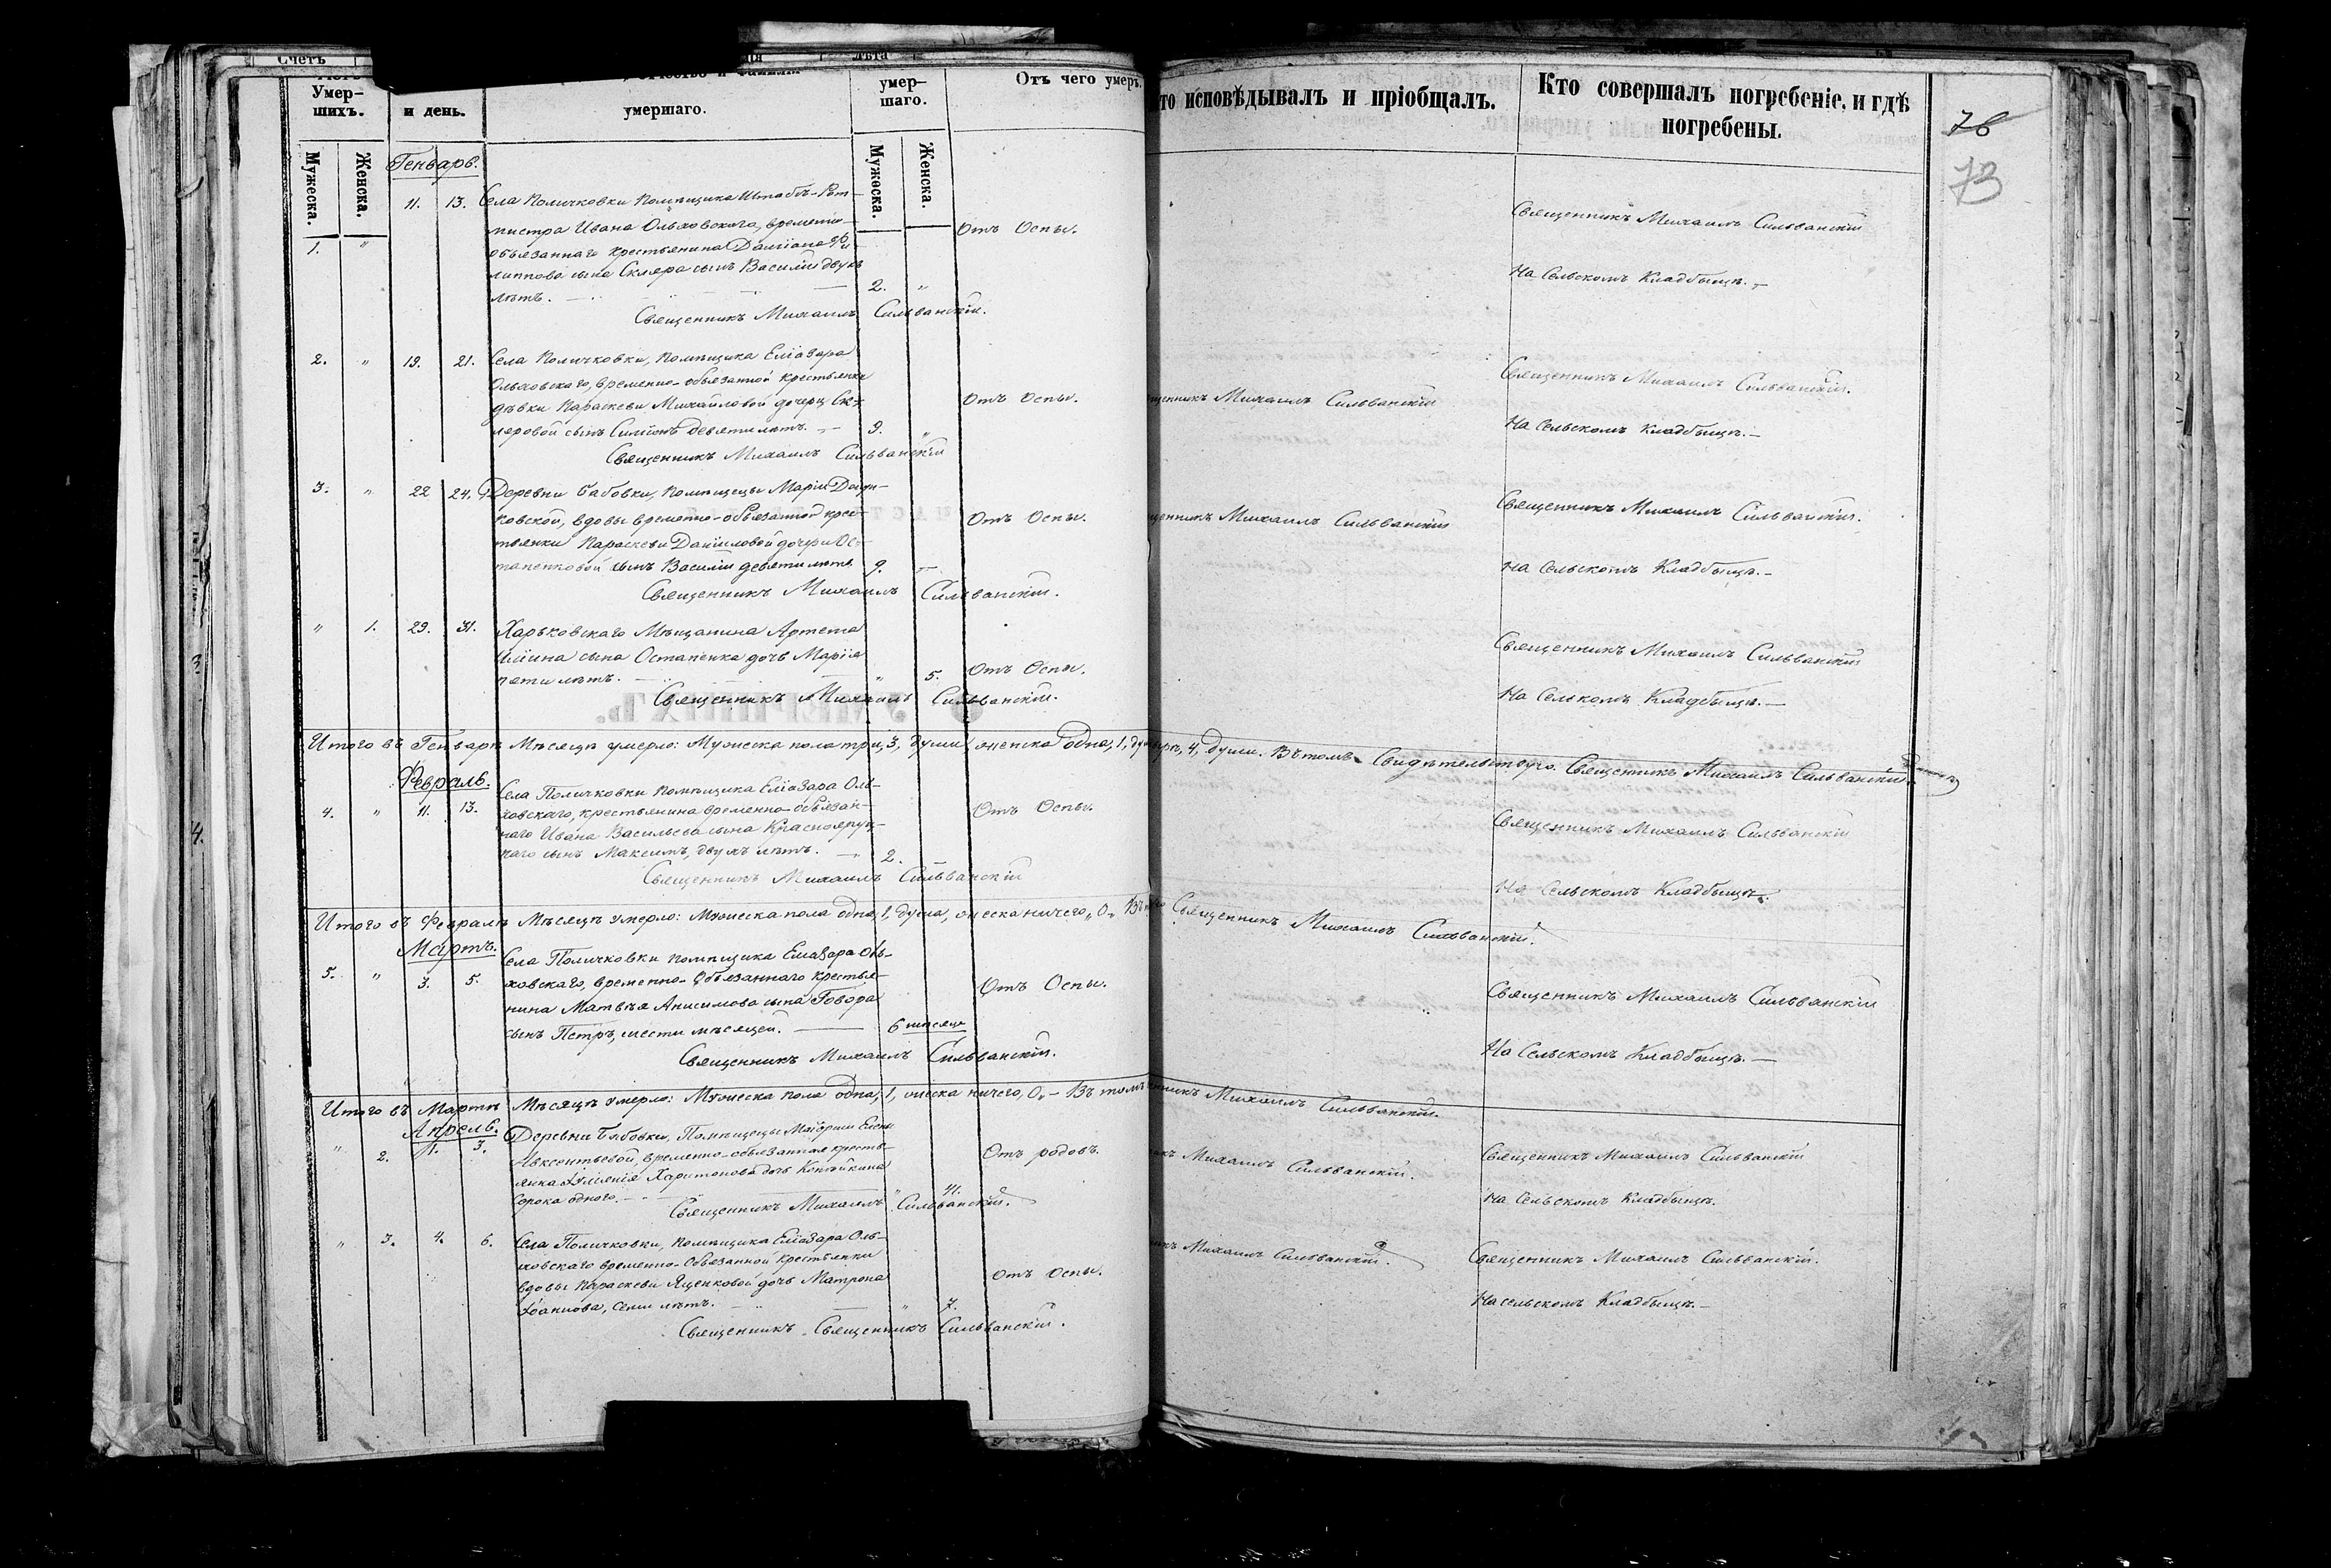 Счетъ
Умер-
шихъ.
и день.
умершаго.
умер-
шаго.
Отъ чего умеръ.
Мужеска.
Женска.
Мужеска.
Женска.
Генварь.
1. " 11. 13. Села Поличковки помѣщика Штабъ-Рот-
мистра Ивана Ольховского, временно
обязаннаго крестьянина Даміана Фи
липпова сына Скляра сынъ Василій двухъ
лѣтъ. 2. "
Отъ Оспы.
Священникъ Михаилъ Сильванскій.
2. " 19. 21. Села Поличковки, помѣщика Еліазара
Ольховскаго, временно-обязанной крестьянки
дѣвки Параскеви Михайловой дочери Ск-
ляровой сынъ Симеонъ девяти лѣтъ. 9. "
Отъ Оспы.
Священникъ Михаилъ Сильванскій
3. " 22 24. Деревни Бабовки, помѣщицы
ковской, вдовы временно-обязанной крес-
тьянки Параскеви Даниловой дочери Ос-
тапенковой сынъ Василій девяти лѣтъ 9. —
Отъ Оспы.
Священникъ Михаилъ Сильванскій.
" 1. 29. 31. Харьковскаго Мѣщанина Артема
Иліина сына Остапенка дочь Марія
пяти лѣтъ. " 5. Отъ Оспы.
Священникъ Михаилъ Сильванскій.
Итого въ Генварѣ Мѣсяцѣ умерло: Мужеска пола три, 3, души, женска одна, 1,
Февраль.
4. " 11. 13. Села Поличковки помѣщика Еліазара Оль-
ховскаго, крестьянина временно-обязан-
наго Ивана Васильева сына Краснояруж-
каго сынъ Максимъ, двухъ лѣтъ. 2.
Отъ Оспы.
Священникъ Михаилъ Сильванскій
Итого въ Февралѣ Мѣсяцѣ умерло: Мужеска пола одна, 1, душа, женска ничего, 0,
Мартъ.
5. " 3. 5. Села Поличковки помѣщика Еліазара Оль-
ховскаго, временно-обязаннаго крестья-
нина Матвѣя Анисимова сына Говора
сынъ Петръ, шести мѣсяцей. 6 мѣсяцъ
Отъ Оспы.
Священникъ Михаилъ Сильванскій.
Итого въ Мартѣ Мѣсяцѣ умерло: Мужеска пола одна, 1, женска ничего, 0, - Въ томъ
Апрель.
" 2. 1. 3. Деревни Бабовки, Помѣщицы Маіорши Елены
Авксентьевой, временно-обязанная кресть-
янка Харитонова дочь
сорока одного. " 41.
Отъ родовъ.
Священникъ Михаилъ Сильванскій.
" 3. 4. 6. Села Поличковки, помѣщика Еліазара Оль-
ховскаго временно-обязанной крестьянки
вдовы Параскеви Яценковой дочь Матрона
Іоаннова, семи лѣтъ. " 7.
Отъ Оспы.
Священникъ Священникъ Сильванскій.
то исповѣдывалъ и пріобщалъ.
Кто совершалъ погребеніе, и гдѣ
погребены.
76
73
Священникъ Михаилъ Сильванскій
На Сельскомъ Кладбищѣ.
Михаилъ Сильванскій
Священникъ Михаилъ Сильванскій.
На Сельскомъ Кладбищѣ.
Михаилъ Сильванскій
Священникъ Михаилъ Сильванскій.
На Сельскомъ Кладбищѣ.
Священникъ Михаилъ Сильванскій
На Селькомъ Кладбищѣ.
4, души. Въ томъ Свидѣтельствую Священникъ Михаилъ Сильванскій.
Священникъ Михаилъ Сильванскій
На Сельскомъ Кладбищѣ.
Священникъ Михаилъ Сильванскій.
Священникъ Михаилъ Сильванскій
На Сельскомъ Кладбищѣ.
Михаилъ Сильванскій.
Михаилъ Сильванскій.
Священникъ Михаилъ Сильванскій
На Сельскомъ Кладбищѣ.
Михаилъ Сильванскій.
Священникъ Михаилъ Сильванскій.
На сельскомъ Кладбищѣ.